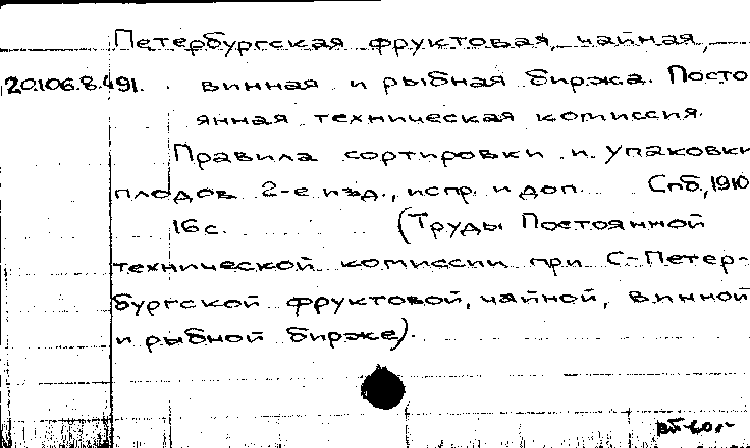 Петербургская фруктовая, чайная,
20.106.8.491. винная и рыбная биржа. Посто
янная техническая комиссия.
Правила сортировки и упаковки
плодов 2-е изд., испр. и доп. Спб, 1910
16 с. (Труды Постоянной
технической комиссии при С-Петер-
бургской фруктовой, чайной, винной
и рыбной бирже).